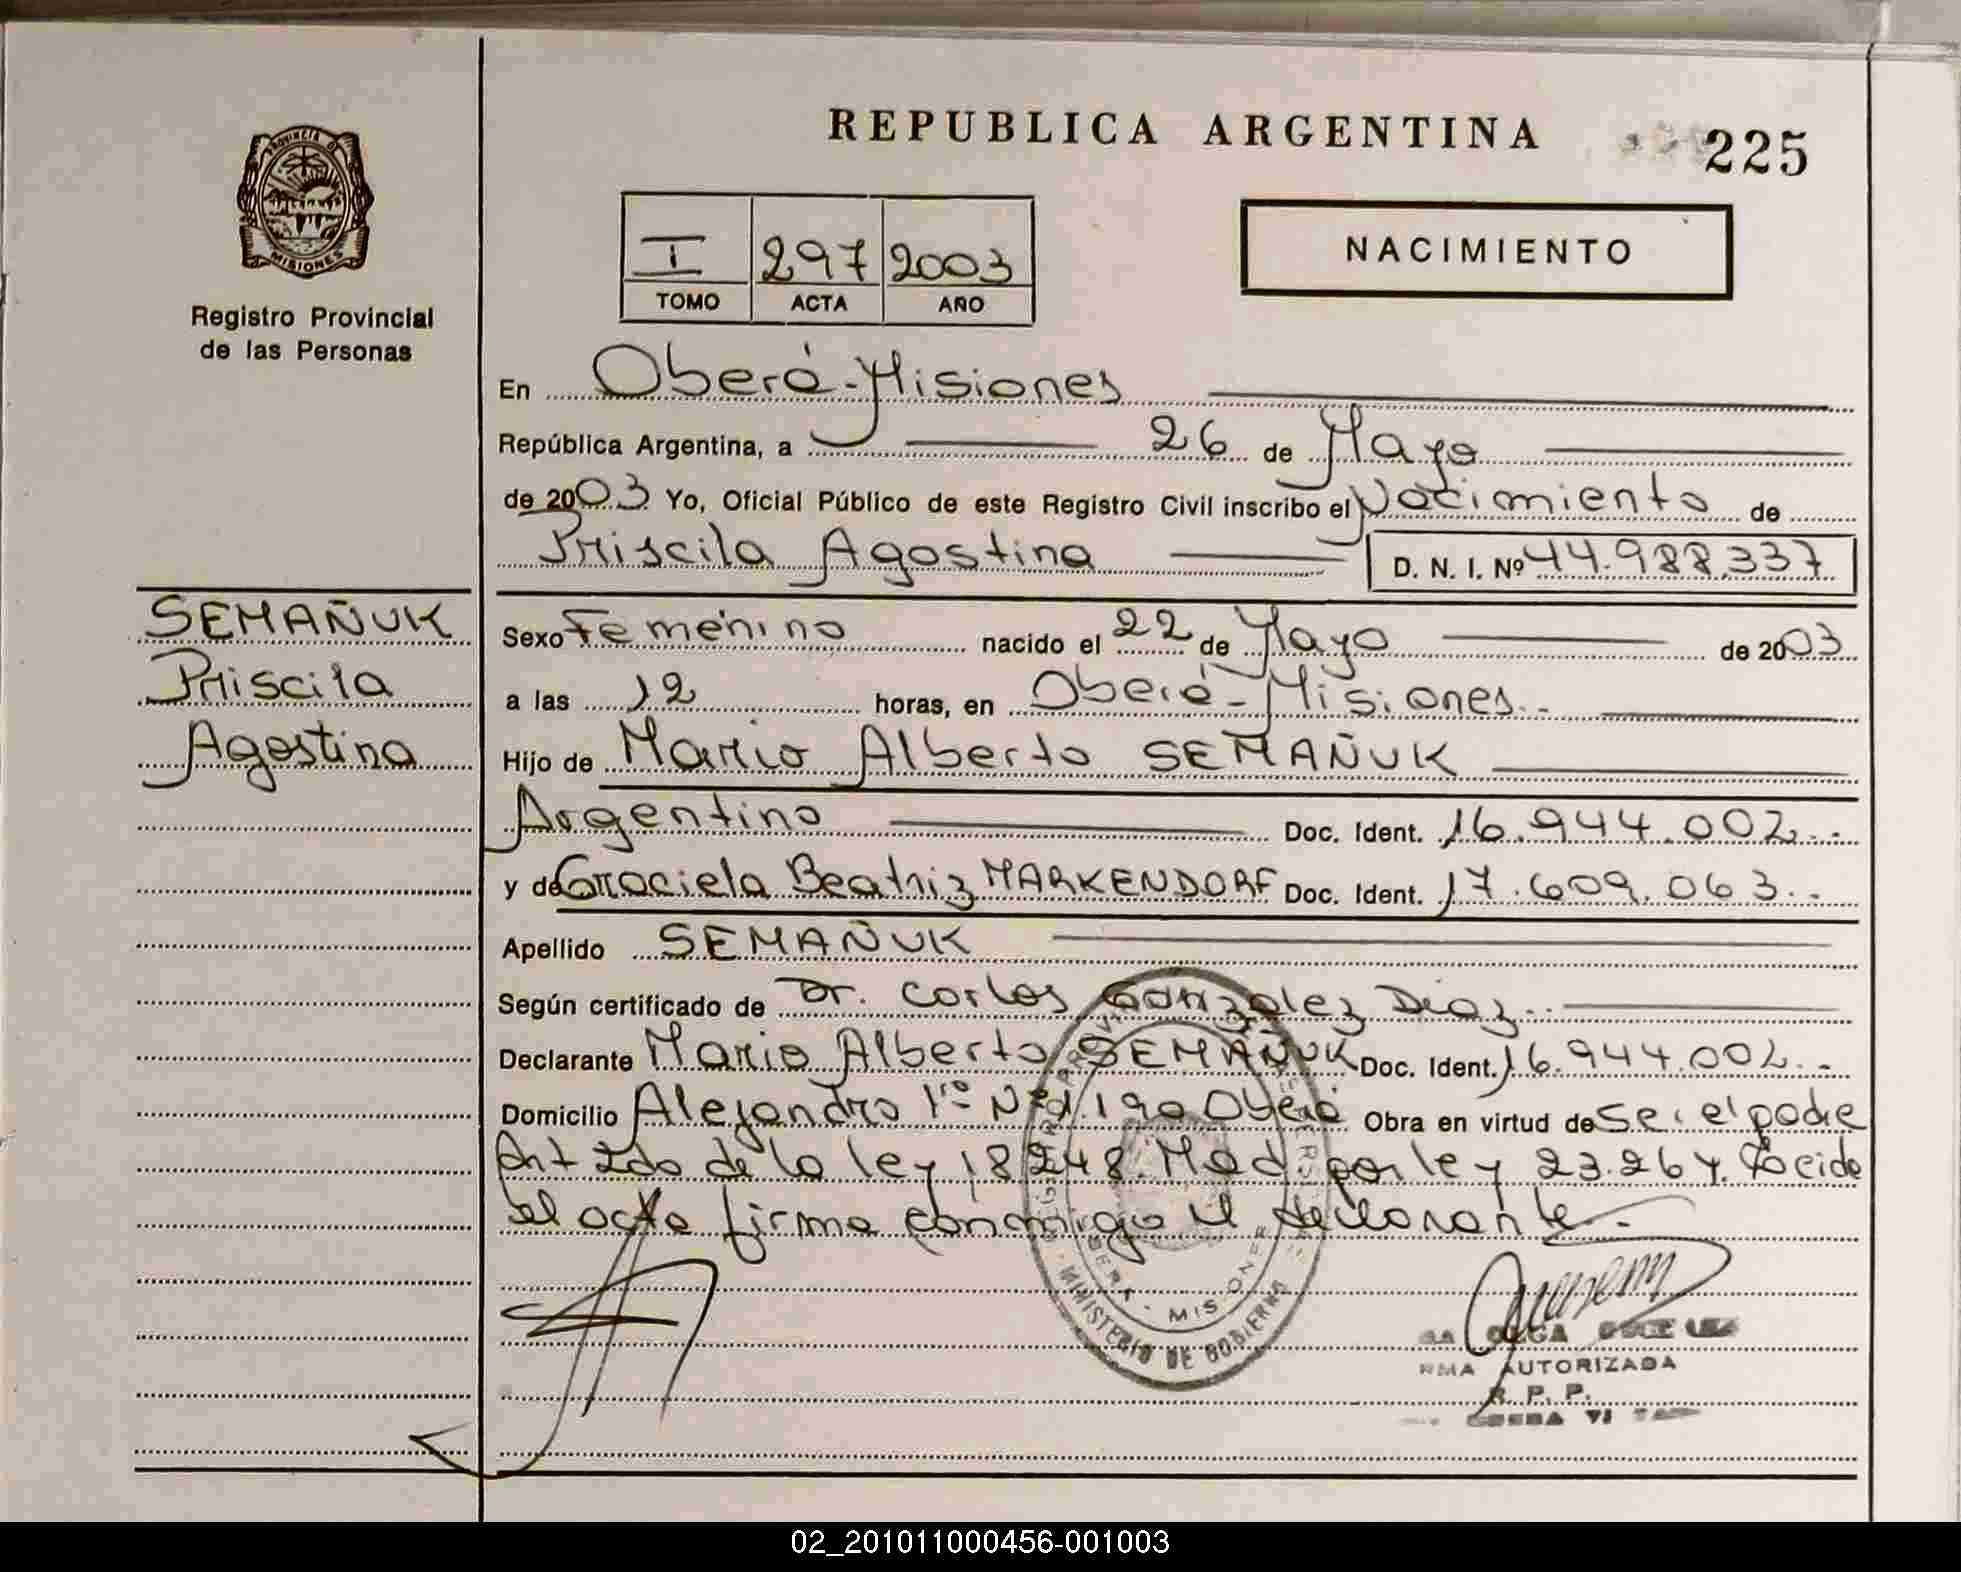 REPUBLICA ARGENTINA
225
PROVINCIA D
MISIONES
Registro Provincial
de las Personas
I 297 2003
TOMO ACTA AÑO
NACIMIENTO
En Oberá-Misiones
República Argentina, a 26 de Mayo
de 2003 Yo, Oficial Público de este Registro Civil inscribo el Nacimiento de
Priscila Agostina D. N. I. Nº 44.988.337
SEMAÑUK
Priscila
Agostina
Sexo Femenino nacido el 22 de Mayo de 2003
a las 12 horas, en Oberá-Misiones.-
Hijo de Mario Alberto SEMAÑUK
Argentino Doc. Ident. 16.944.002.-
y de Graciela Beatriz MARKENDORF Doc. Ident. 17.609.063.-
Apellido SEMAÑUK
Según certificado de Dr. Carlos Gonzalez Diaz.-
Declarante Mario Alberto SEMAÑUK Doc. Ident. 16.944.002.-
Domicilio Alejandro 1ro Oberá Obra en virtud de Ser el padre
Art 2do de la ley 18248. Mod por ley 23.264.
el acta firma conmigo el declarante.-
MISIONES
MINISTERIO DE GOBIERNO
OLGA
AUTORIZADA
R. P. P.
02_201011000456-001003